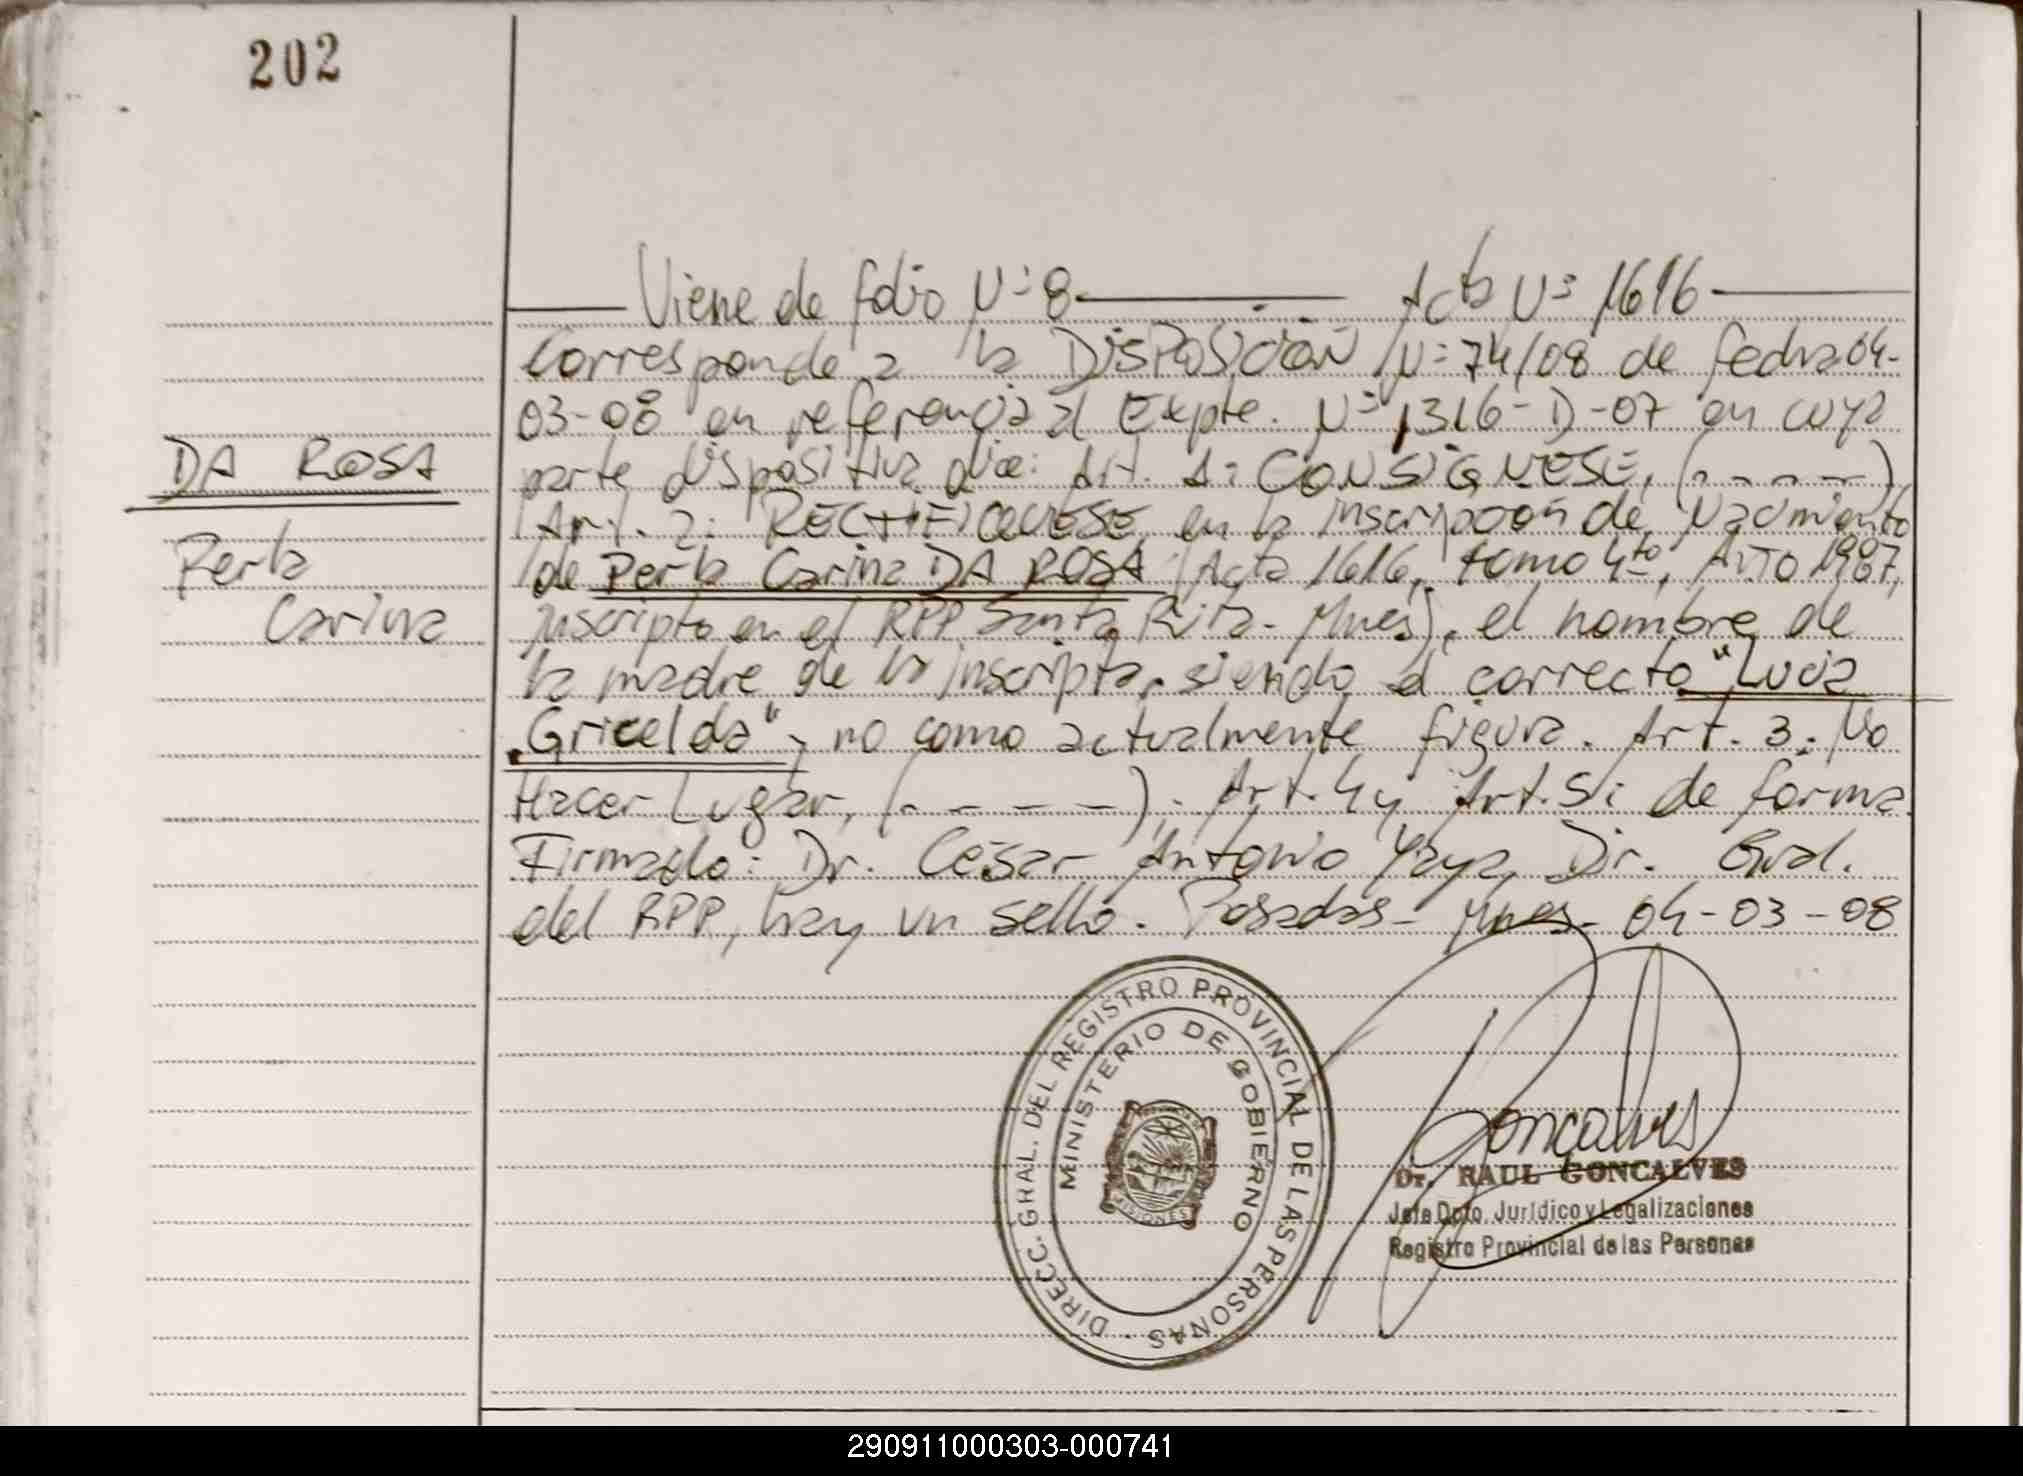 202
Viene de folio Nº 8 Acta Nº 1616
Corresponde a la DISPOSICIÓN Nº 74/08 de fecha 04-
03-08 en referencia al Expte. Nº 1316-D-07 en cuya
DA ROSA
parte dispositiva dice: Art. 1: CONSIGNESE, (- - - -)
Art. 2: RECTIFIQUESE en la inscripción de Nacimiento
Perla
de Perla Carina DA ROSA (Acta 1616, tomo 4to, AÑO 1987,
Carina
Inscripta en el RPP Santa Rita - Mnes), el nombre de
la madre de la inscripta, siendo el correcto "Lucia
Gricelda" y no como actualmente figura. Art. 3: No
Hacer Lugar, (- - - -). Art. 4 y Art. 5: de forma
Firmado: Dr. César Antonio Yaya, Dir. Gral.
del RPP, hay un sello. Posadas - Mnes - 04-03-08
DIRECC. GRAL. DEL REGISTRO PROVINCIAL DE LAS PERSONAS
MINISTERIO DE GOBIERNO
MISIONES
Goncalves
Dr. RAUL GONCALVES
Jefe Dpto. Jurídico y Legalizaciones
Registro Provincial de las Personas
290911000303-000741